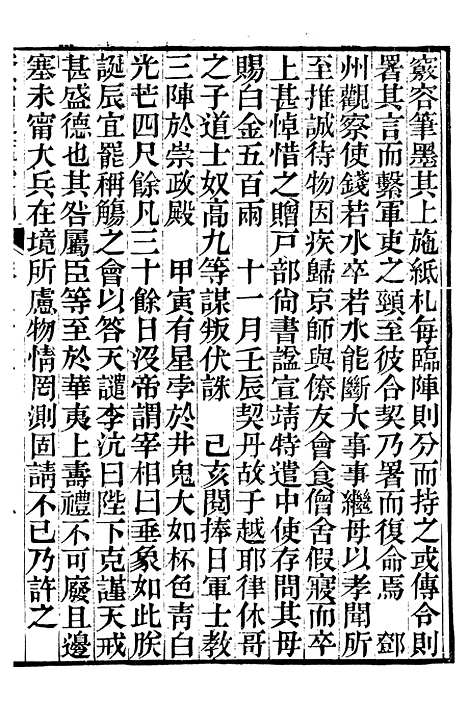 竅容筆墨其上施紙札每臨陣則分而持之或傳令則
署其言而繫軍吏之頸至彼合契乃署而復命焉　鄧
州觀察使錢若水卒若水能斷大事事繼母以孝聞所
至推誠待物因疾歸京師與僚友會食僧舍假寢而卒
上甚悼惜之贈戸部尙書諡宣靖特遣中使存問其母
賜白金五百兩　十一月壬辰契丹故于越耶律休哥
之子道士奴高九等謀叛伏誅　己亥閱捧日軍士教
三陣於崇政殿　甲寅有星孛於井鬼大如杯色靑白
光芒四尺餘凡三十餘日沒帝謂宰相曰垂象如此朕
誕辰宜罷稱觴之會以答天譴李沆曰陛下克謹天戒
甚盛德也其咎屬臣等至於華夷上壽禮不可廢且邊
塞未甯大兵在境所慮物情罔測固請不已乃許之